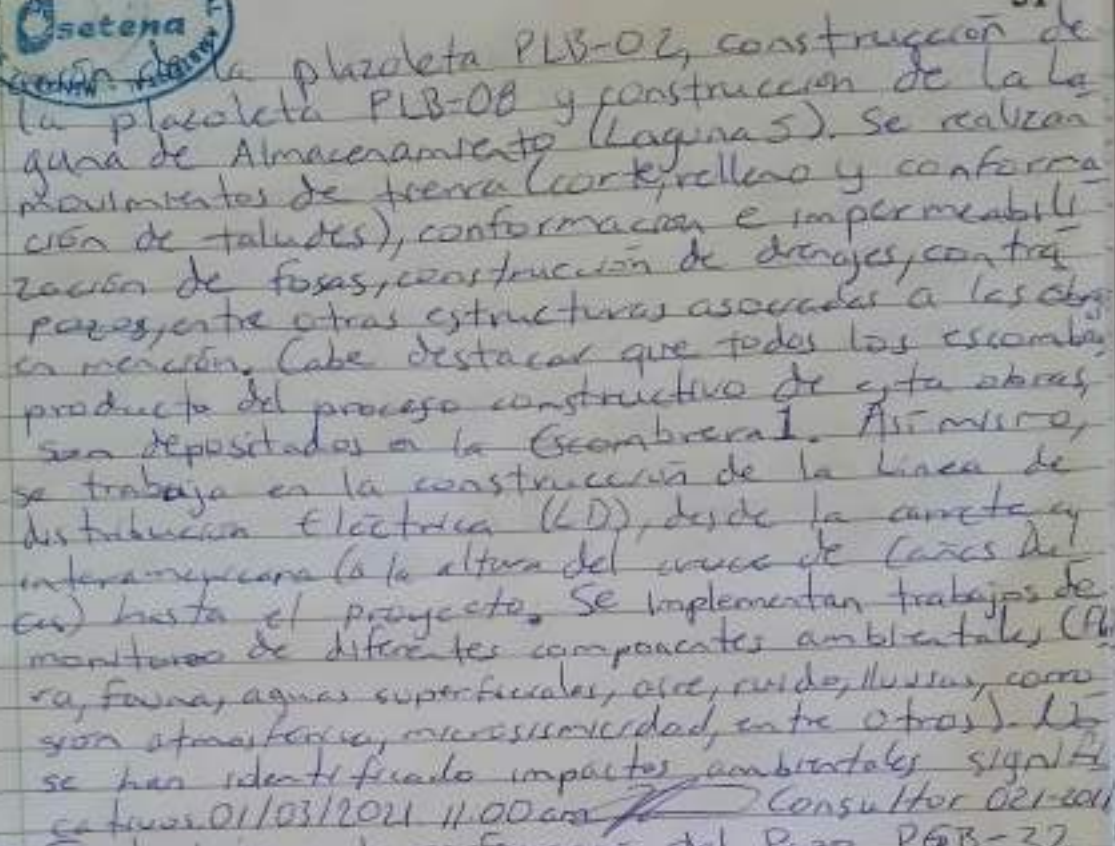 setena
la plazoleta PLB-02, construcción de
la plazoleta PLB-08 y construcción de la La
guna de Almacenamiento (Laguna 5). Se realizan
movimientos de tierra (corte, relleno y conforma
ción de taludes), conformación e impermeabili
zación de fosas, construcción de drenajes, contra
pozos, entre otras estructuras asociadas a las obras
en mención. Cabe destacar que todos los escombros
producto del proceso constructivo de esta obras,
son depositados en la Escombrera 1. Así mismo,
se trabaja en la construcción de la Línea de
distribución Eléctrica (LD), desde la carretera
interamericana (a la altura del cruce de Cañas Dul
ces) hasta el proyecto. Se implementan trabajos de
monitoreo de diferentes componentes ambientales (Flo
ra, fauna, aguas superficiales, aire, ruido, lluvias, corro
sión atmosférica, microsismicidad, entre otros). No
se han identificado impactos ambientales signifi
cativos 01/03/2021 11:00 am Consultor 021-2011
del Pozo PGB-32